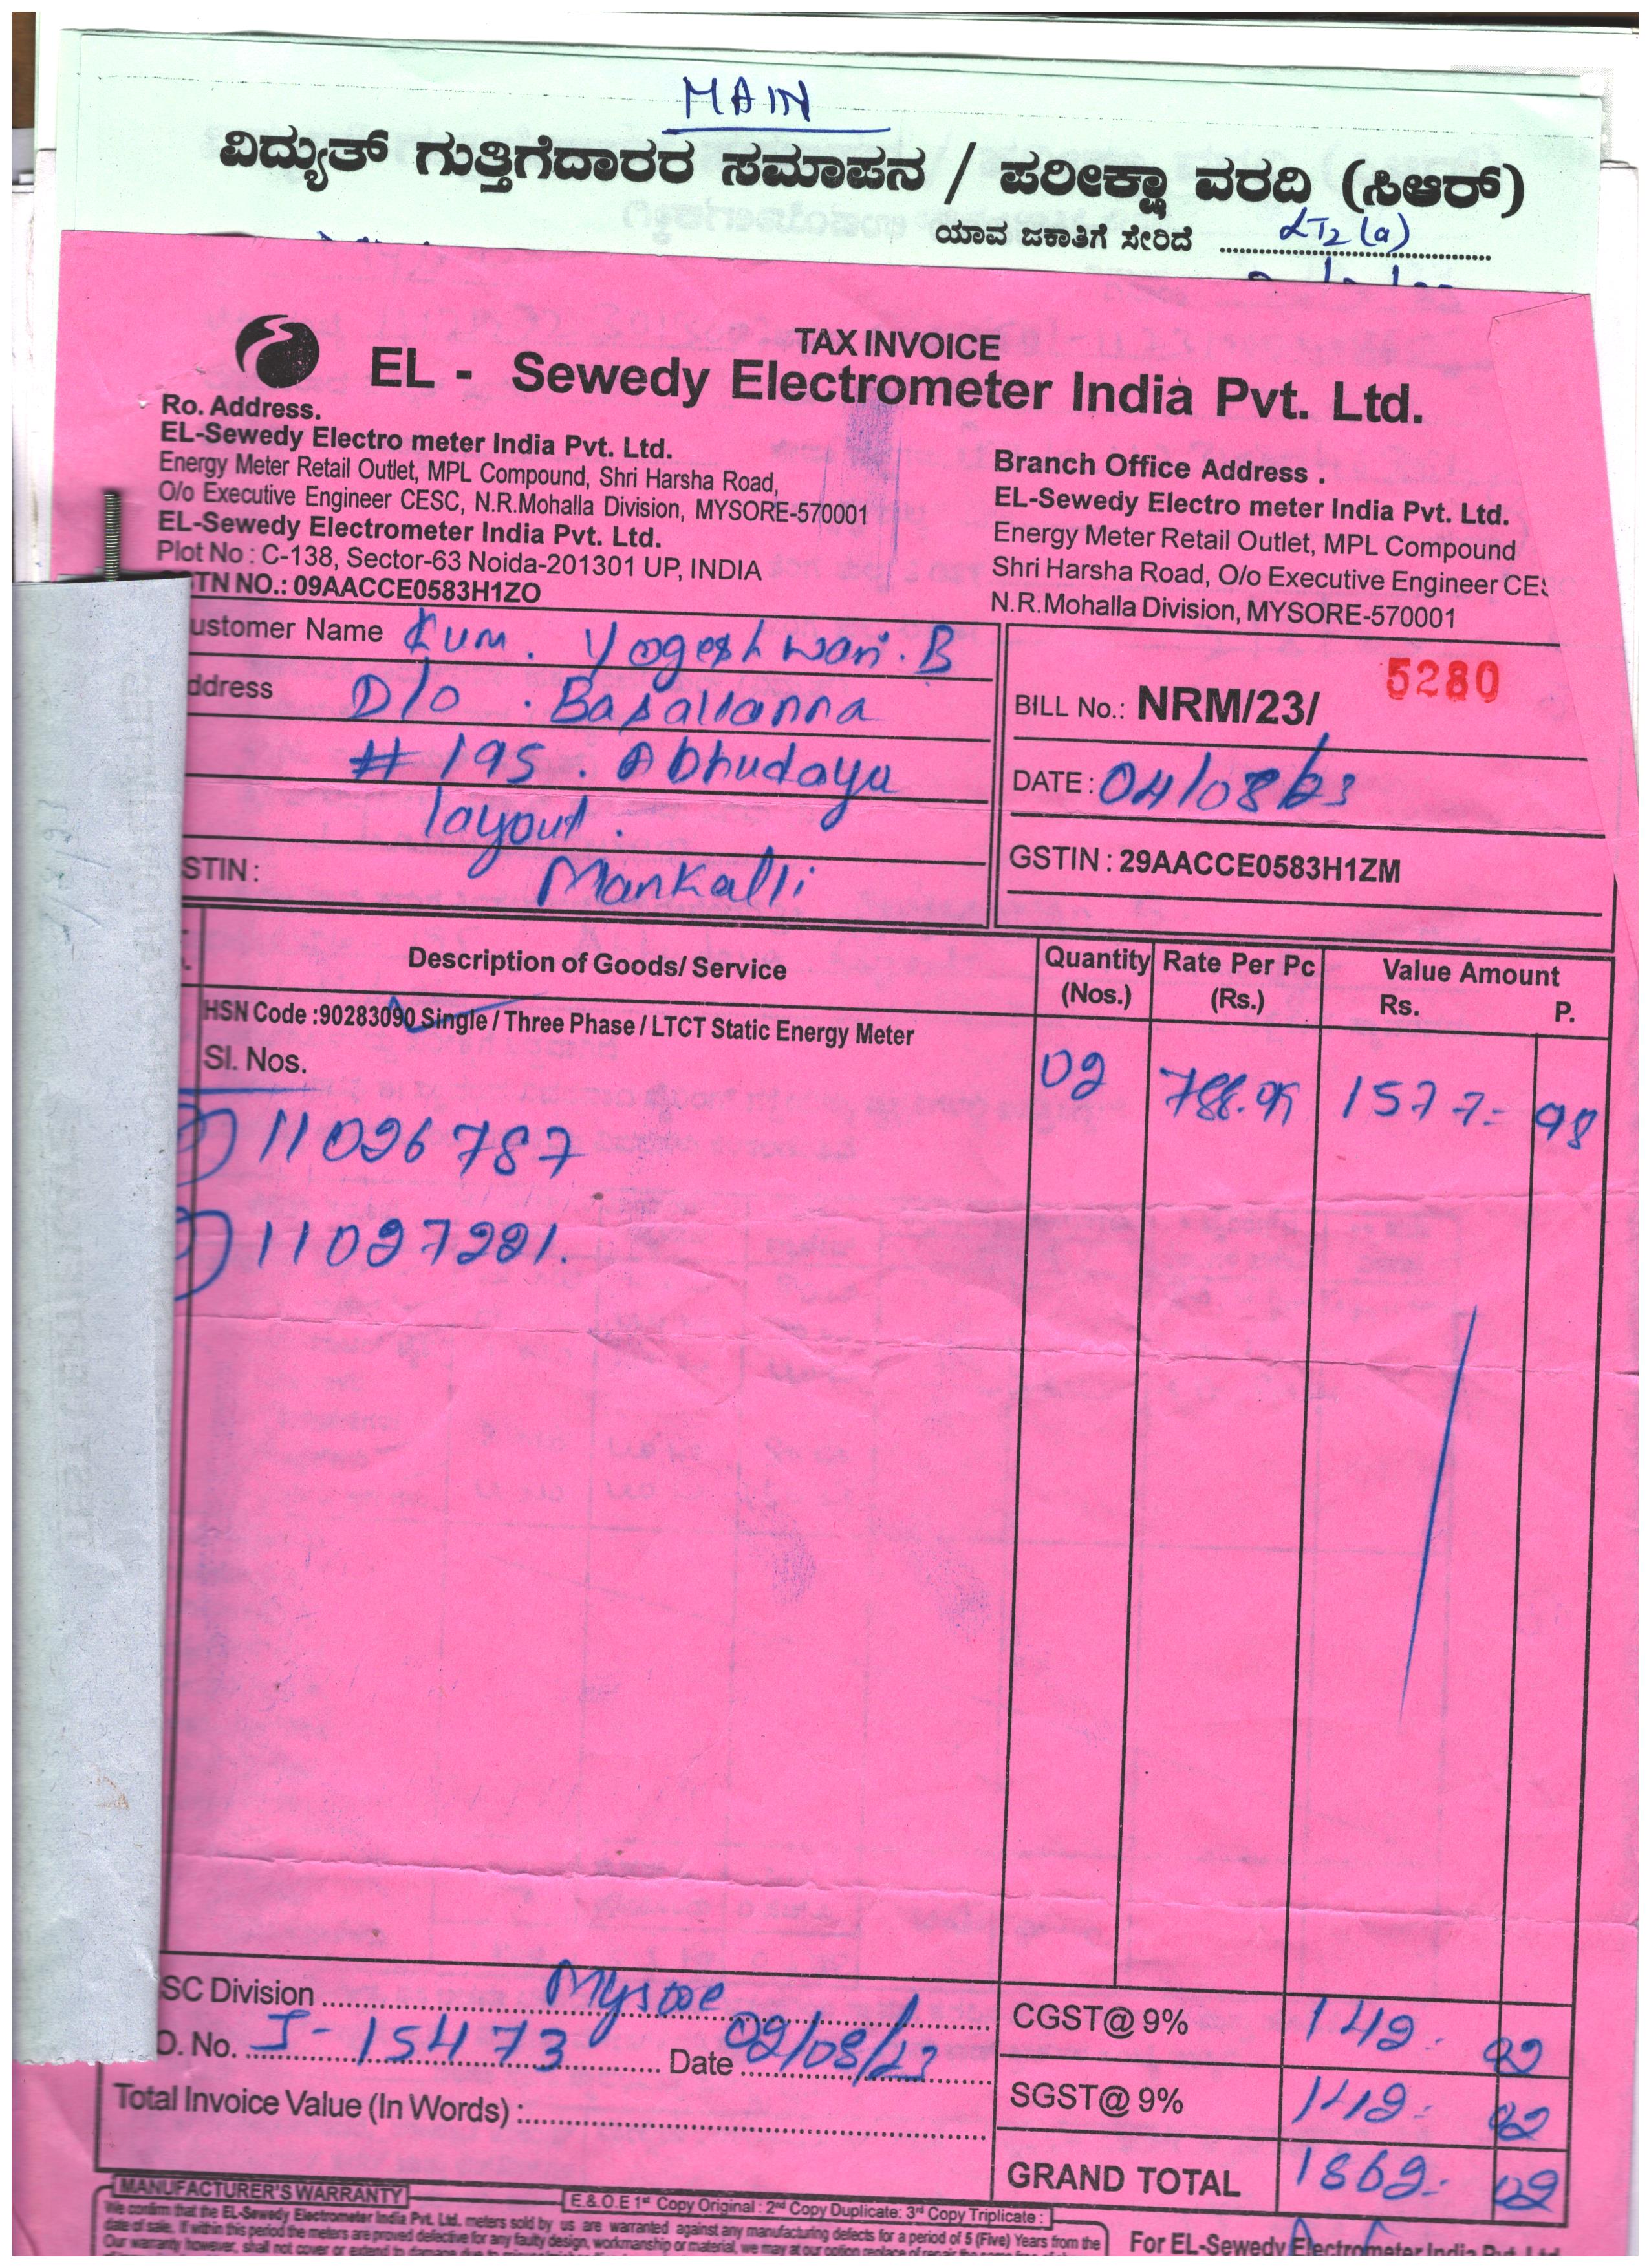 MAIN
ವಿದ್ಯುತ್ ಗುತ್ತಿಗೆದಾರರ ಸಮಾಪನ / ಪರೀಕ್ಷಾ ವರದಿ (ಸಿಆರ್)
ಯಾವ ಜಕಾತಿಗೆ ಸೇರಿದೆ LT2 (a)
TAX INVOICE
EL - Sewedy Electrometer India Pvt. Ltd.
Ro. Address.
EL-Sewedy Electro meter India Pvt. Ltd.
Energy Meter Retail Outlet, MPL Compound, Shri Harsha Road,
O/o Executive Engineer CESC, N.R.Mohalla Division, MYSORE-570001
EL-Sewedy Electrometer India Pvt. Ltd.
Plot No : C-138, Sector-63 Noida-201301 UP, INDIA
TN NO.: 09AACCE0583H1ZO
Branch Office Address .
EL-Sewedy Electro meter India Pvt. Ltd.
Energy Meter Retail Outlet, MPL Compound
Shri Harsha Road, O/o Executive Engineer CES
N.R.Mohalla Division, MYSORE-570001
ustomer Name Kum. Yogeshwari. B
ddress D/o . Basavanna
# 195. Abhudaya
layout.
STIN : Mankalli
BILL No.: NRM/23/ 5280
DATE : 04/08/23
GSTIN : 29AACCE0583H1ZM
Description of Goods/ Service Quantity (Nos.) Rate Per Pc (Rs.) Value Amount Rs. P.
HSN Code :90283090 Single / Three Phase / LTCT Static Energy Meter
Sl. Nos. 02 788.99 1577- 98
11026787
11027221.
SC Division Mysore
O. No. J-15473 Date 02/08/23
Total Invoice Value (In Words) :
CGST@ 9% 142- 02
SGST@ 9% 142- 02
GRAND TOTAL 1862- 02
MANUFACTURER'S WARRANTY
E.& O.E 1st Copy Original : 2nd Copy Duplicate: 3rd Copy Triplicate :
We confirm that the EL-Sewedy Electrometer India Pvt. Ltd. meters sold by us are warranted against any manufacturing defects for a period of 5 (Five) Years from the
date of sale. If within this period the meters are proved defective for any faulty design, workmanship or material, we may at our option replace of repair the
Our warranty however, shall not cover or extend to damage due to
For EL-Sewedy Electrometer India Pvt. Ltd